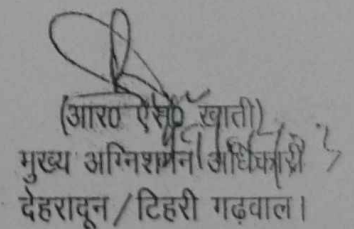 (आर० एस० खाती)
मुख्य अग्निशमन अधिकारी
देहरादून / टिहरी गढ़वाल।